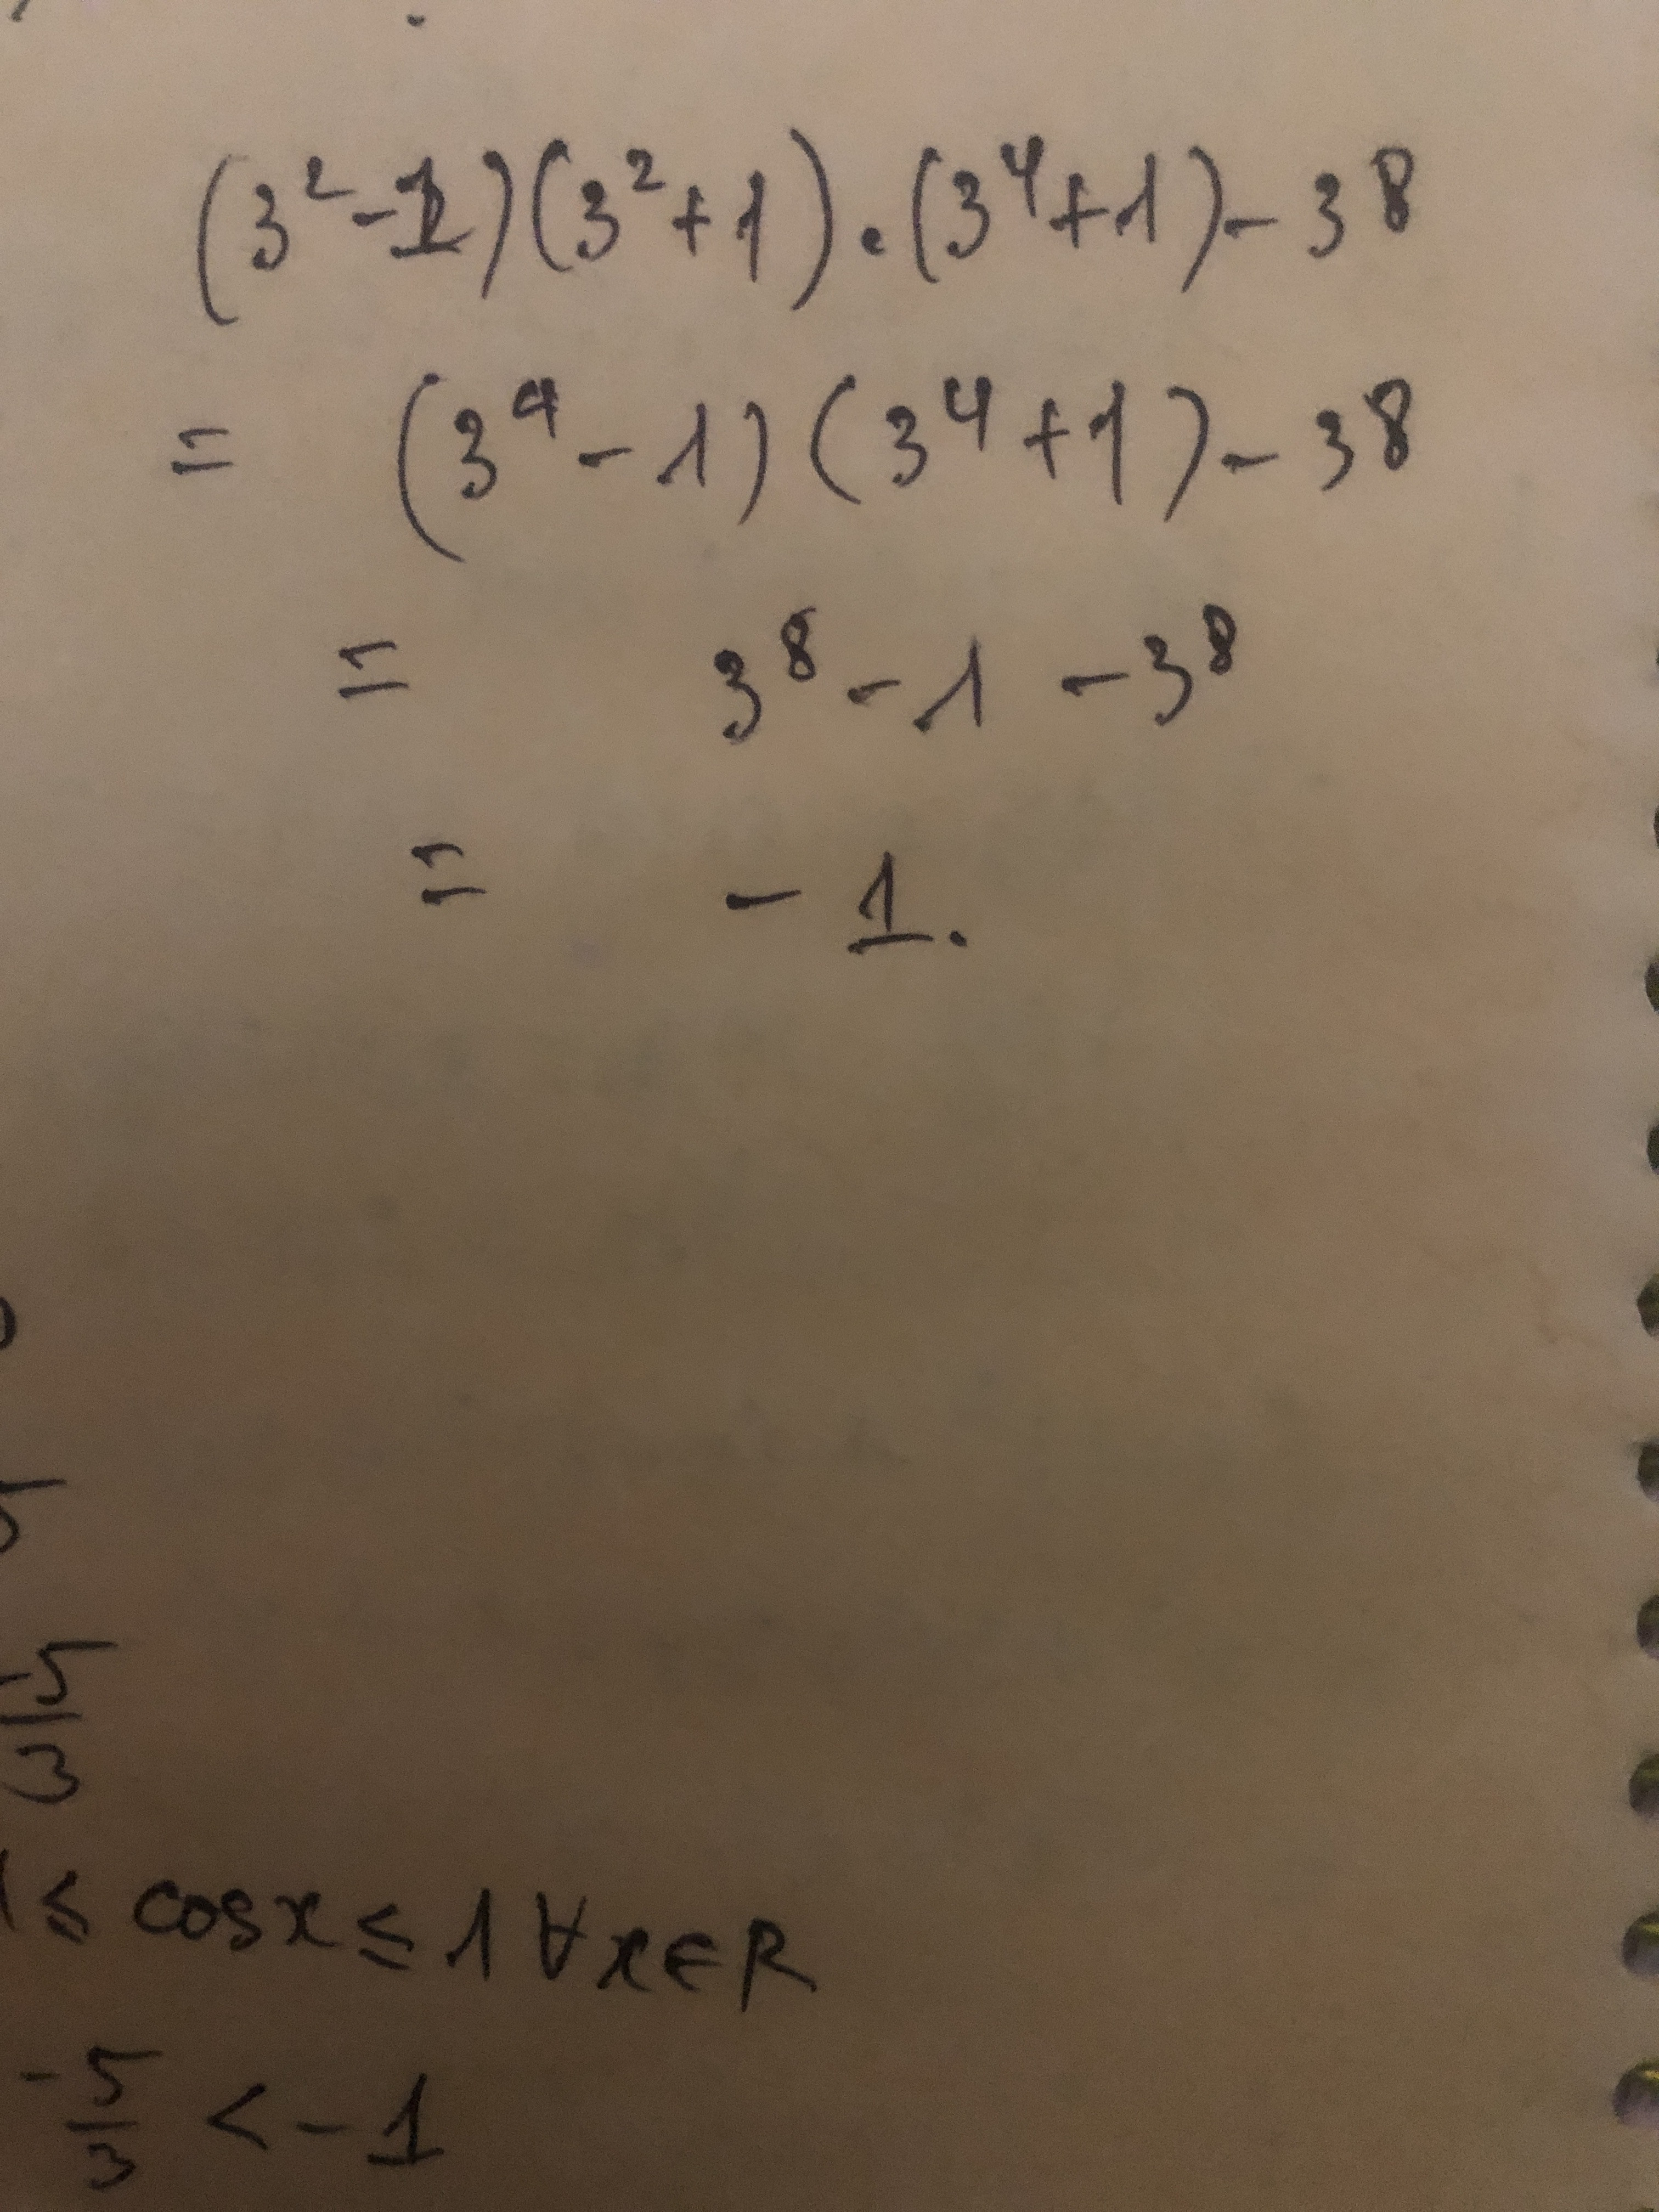 (3²-1)(3²+1).(3⁴+1)-3⁸
= (3⁴-1)(3⁴+1)-3⁸
= 3⁸-1-3⁸
= -1.
5
-5/3
1≤ cosx≤1∀x∈R
-5/3 <-1